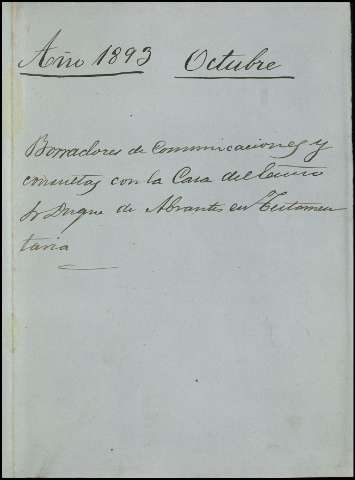 Año 1893 Octubre
Borradores de Comunicaciones y
consultas con la Casa del Excmo
Sr Duque de Abrantes en Testamen
taria